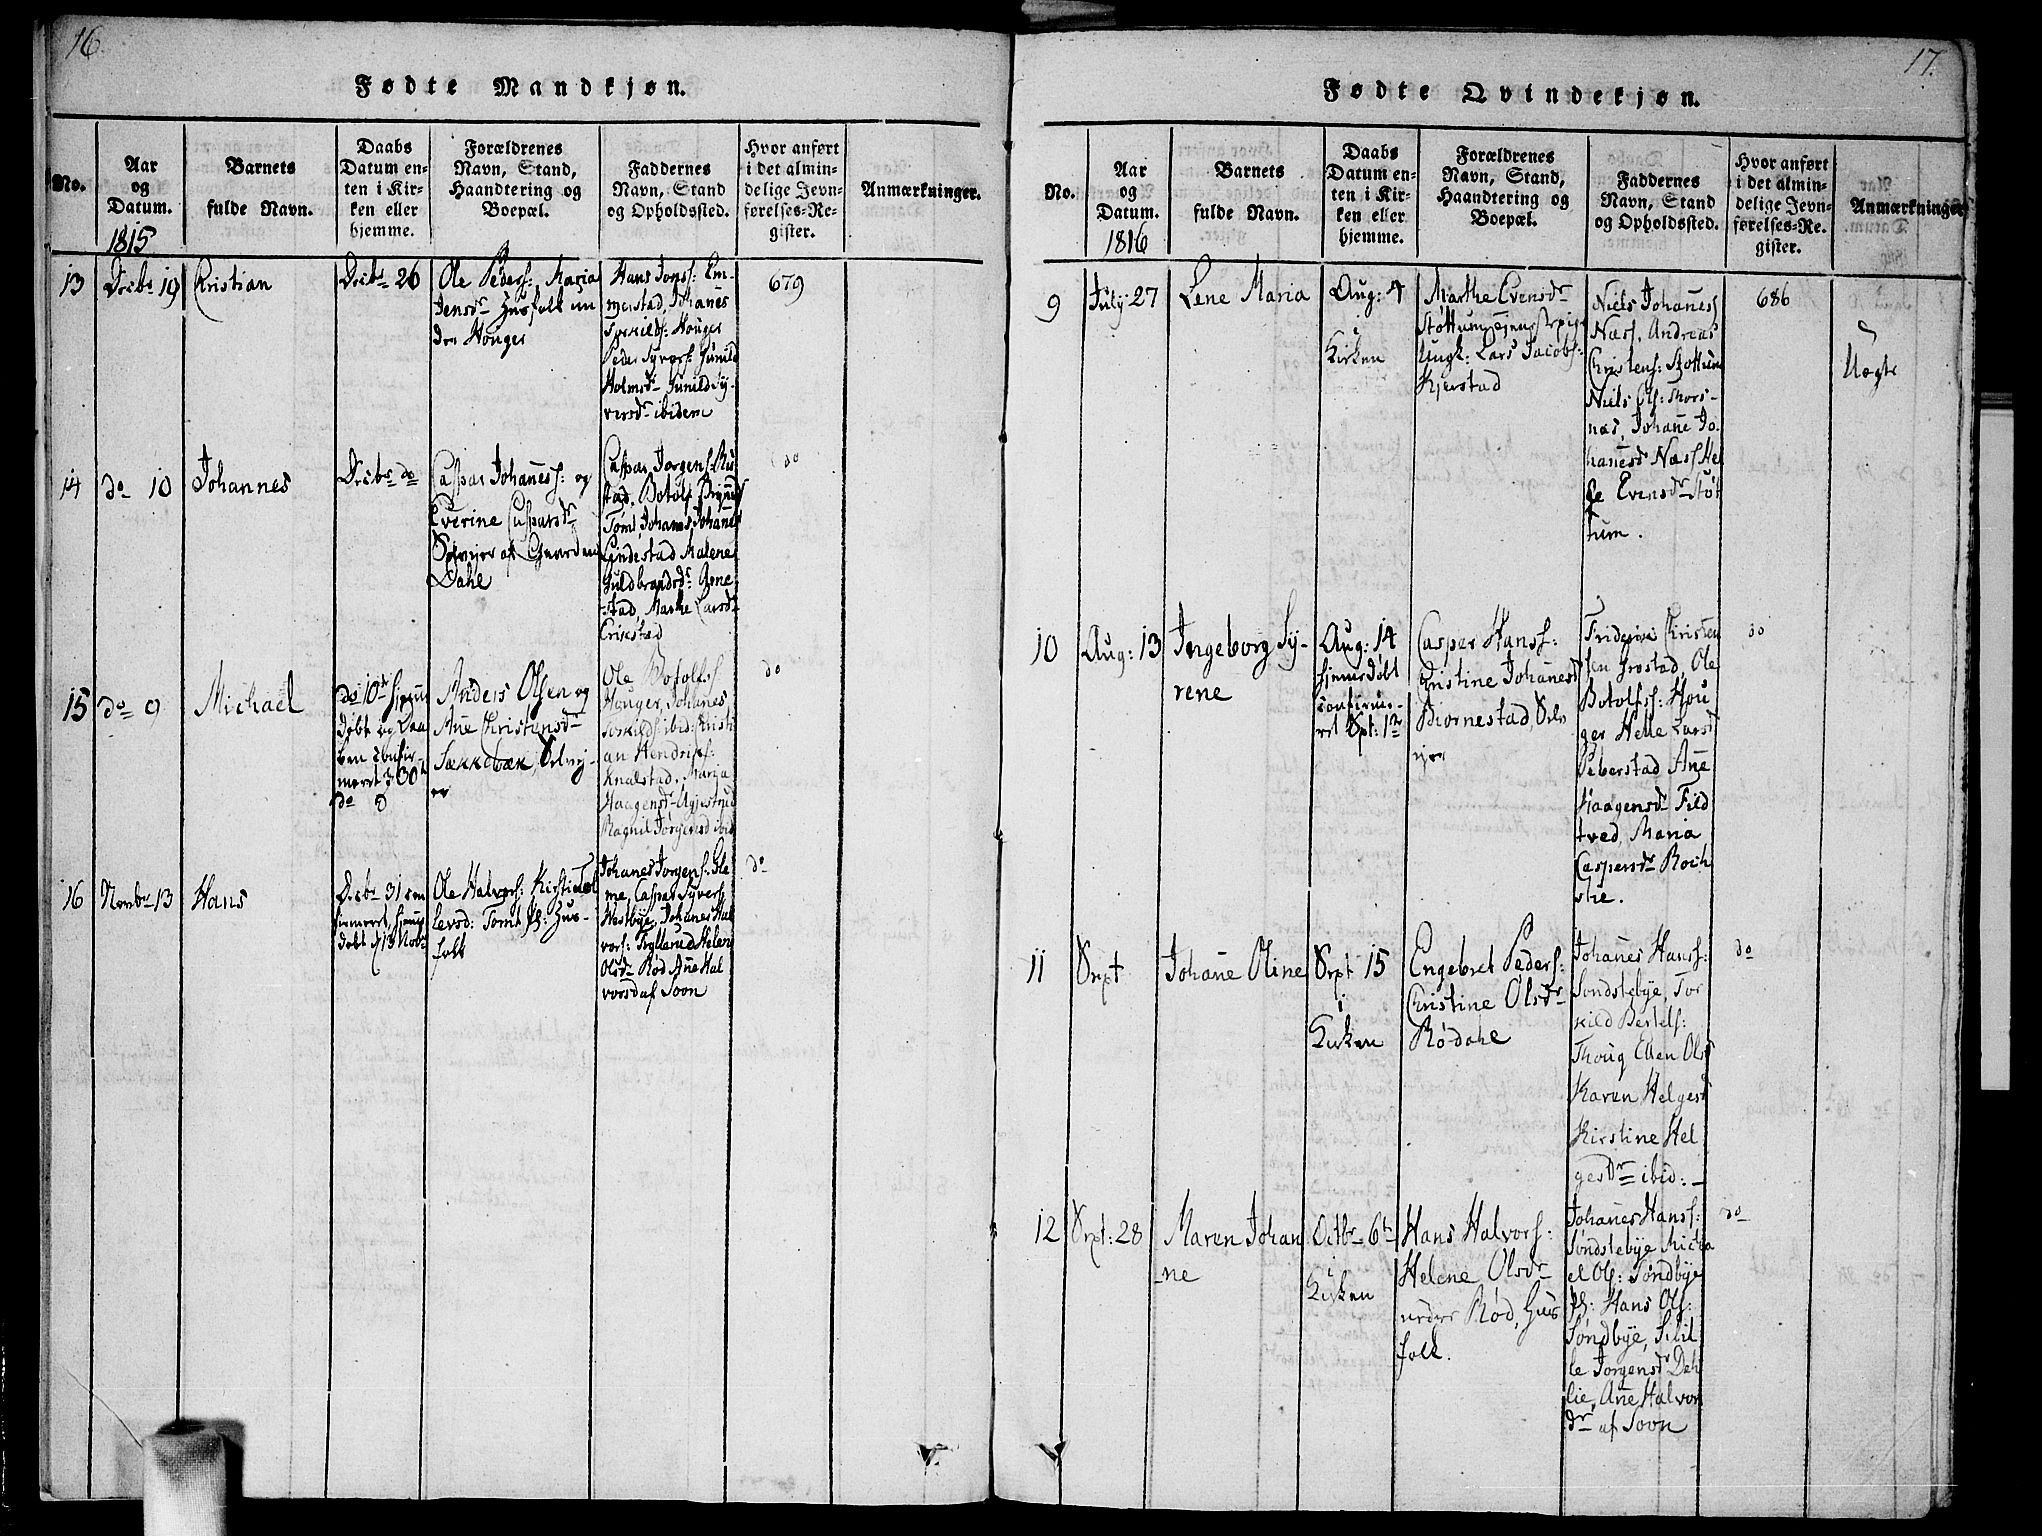 16
Fødte Mandkjøn.
No.
Aar
og
Datum.
1815
Barnets
fulde Navn.
Daabs
Datum en-
ten i Kir-
ken eller
hjemme.
Forældrenes
Navn, Stand,
Haandtering og
Boepæl.
Faddernes
Navn, Stand
og Opholdssted.
Hvor anført
i det almin-
delige Jevn-
førelses-Re-
gister.
Anmærkninger.
13
Decbr 19
Kristian
Decbr 26
Ole Peders: Maria
Jensdr Husfolk un
der Houger
Hans Jonss: Em-
merstad, Johanes
Torkilds: Houger
Peder Syvers: Gunild
Holmsdr Gunild Sy-
versdr ibidem
679
14
do 10
Johannes
Decbr do
Caspar Johaness: og
Everine Caspersdr
Selvejer af Gaarden
Dahle
Caspar Jørgens: Ru
stad, Botolf
Tomt, Johanes Johanes
Lindestad Malene
Guldbrandsdr
stad, Marthe Larsdr
Erikstad
do
15
do 9
Michael
do 10de hjemme
døbt og Daa
ben confir
meret d 30te
do
Anders Olsen og
Ane Christensdr
Sækkebæk, Selvej-
er
Ole Botolfss
Houger, Johanes
Torkilds: ibid: Kristi
an Hendrikss:
Knalstad, Maria
Haagensdr Agjestrud
Ragnil Jørgensd ibid
do
16
Novbr 13
Hans
Decbr 31 con
firmeret, hjeme
døbt d 13 Novbr
Ole Halvors: Kirsti
levsd: Tomt Pl: Hus-
folk
Johanes Jorgens: Gle
me, Caspar Syvers
Westbye, Johanes Hal
vors: Tyllerud Helene
Olsdr Rød Ane Hal
vorsd af Soon
do
17.
Fødte Qvindekjøn.
No.
Aar
og
Datum.
1816
Barnets
fulde Navn.
Daabs
Datum en-
ten i Kir-
ken eller
hjemme.
Forældrenes
Navn, Stand,
Haandtering og
Boepæl.
Faddernes
Navn, Stand
og Opholdssted.
Hvor anført
i det almin-
delige Jevn-
førelses-Re-
gister.
Anmærkninger
9
July 27
Lene Maria
Aug: 4
i
Kirken
Marthe Evensdr
Støttum tjenestepige
Ungk: Lars Jacobs:
Kjerstad
Niels Johaness
Næss, Andreas
Christens: Støttum
Niels Ols: Thors-
næs, Johane Jo.
hanesd Næss Hel
le Evensdr Støt
tum.
686
Uægte
10
Aug: 13
Ingeborg Sy-
rene
Aug: 14
hjemedøbt
confirme-
ret Spt: 1te
Casper Hanss:
Cristine Johanesd
Biornestad, Selv
ejer
Friderice Christen
sen Frostad, Ole
Botolfss: Hou
ger Helle Larsd
Peberstad Ane
Haagensdr Fild
tvod, Maria
Caspersdr Roch
stie.
do
11
Sept
Johane Oline
Sept 15
i
Kirken
Engebret Peders:
Christine Olsdr
Rødahle
Johanes Hanss:
Sondstebye, Tor
kild Bertels:
Thoug Ellen Olsd
Karen Helgesd
Kirstine Hel
gesdr ibid: _
do
12
Sept: 28
Maren Johan
_ne
Octbr 6te
i
Kirken
Hans Halvors:
Helene Olsdr
under Rød, Hus
folk.
Johanes Hanss:
Søndstebye Micha
el Ols: Søndbye
Pl: Hans Ols:
Søndbye, Sibil
le Jorgensdr Deh
lie, Ane Halvors
dr af Soon
do